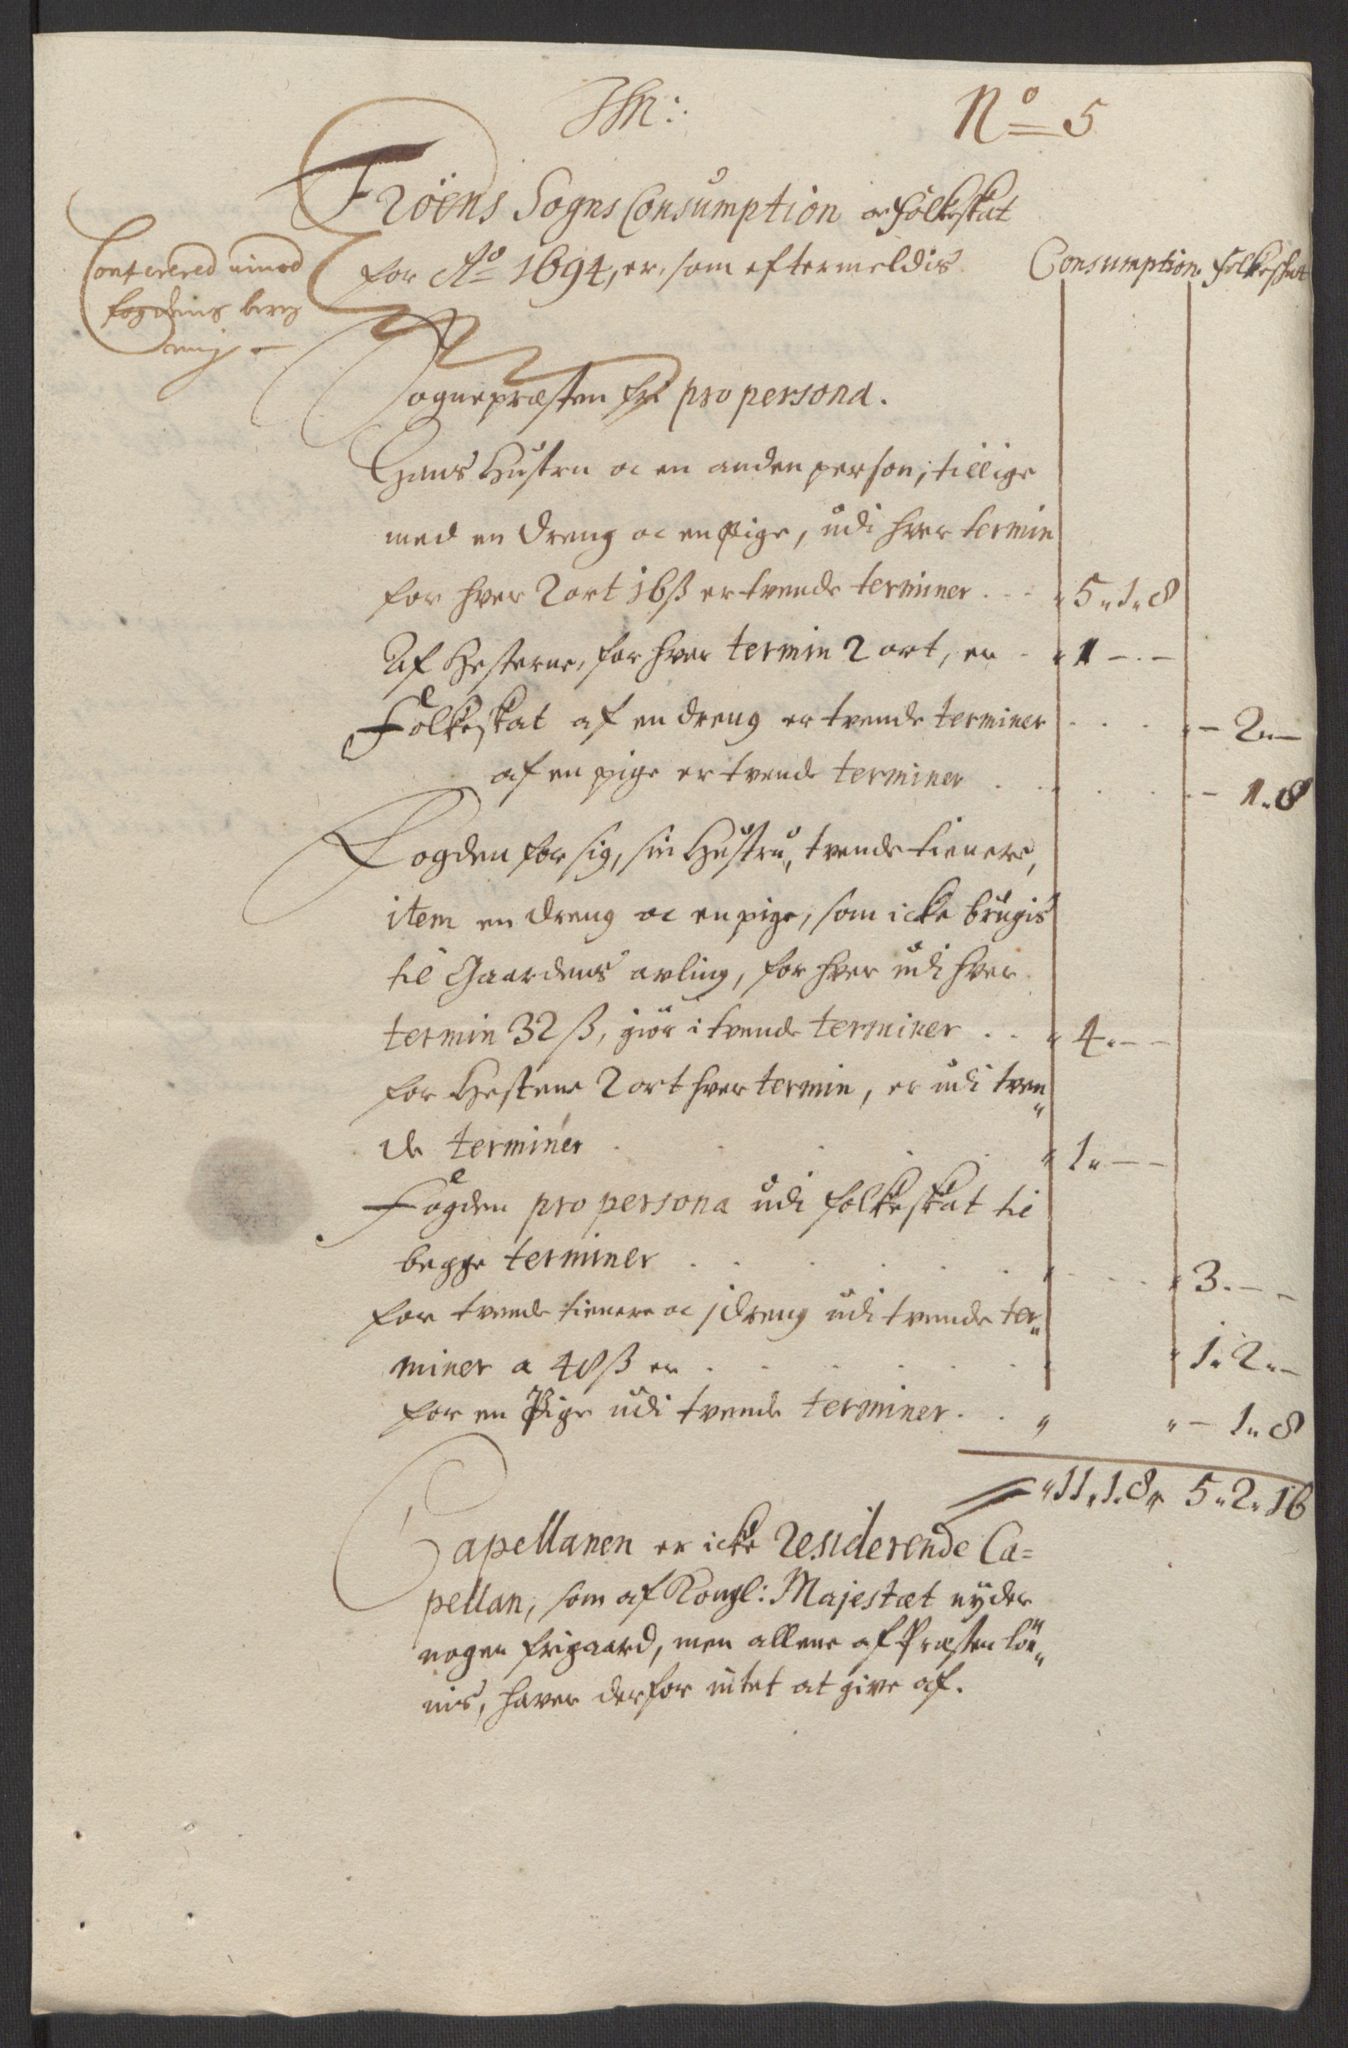 No 5
Fröens Sogns Consumption oc folkeskat
for Ao 1694, er, som eftermeldis
Consumption. folkeskat
Conferered imod
fogdens bereg
ning
Sognepræsten fri pro persona.
Hans Hustru oc en anden person, tillige
med en dreng oc en Pige, udi hver termin
for hver 2 ort 16 ß er tvende terminer . . . 5. 1. 8
Af Hesterne, for hver termin 2 ort, er - 1 - . -
Folkeskat af en dreng er tvende terminer . . . . - 2. -
af en pige er tvende terminer . . . . - 1. 8
Fogden for sig, sin Hustru, tvende tienere,
item en dreng oc en pige, som icke brugis
til Gaardens avling, for hver udi hver
termin 32 ß, giør i tvende terminer . . 4. - -
for Hestene 2 ort hver termin, er udi tven„
de terminer . . . . 1. - -
Fogden pro persona udi folkeskat til
begge terminer . . . . . . 3. - -
for tvende tienere oc 1 dreng udi tvende ter„
miner a 48 ß er . . . . . . 1. 2. -
for en Pige udi tvende terminer . . „ „ - 1. 8
11. 1. 8. 5. 2. 16
Capellanen er icke Residerende Ca=
pellan, som af Kongl: Majestæt nyder
nogen frigaard, men allene af Præsten løn„
nis, haver derfor intet at give af.